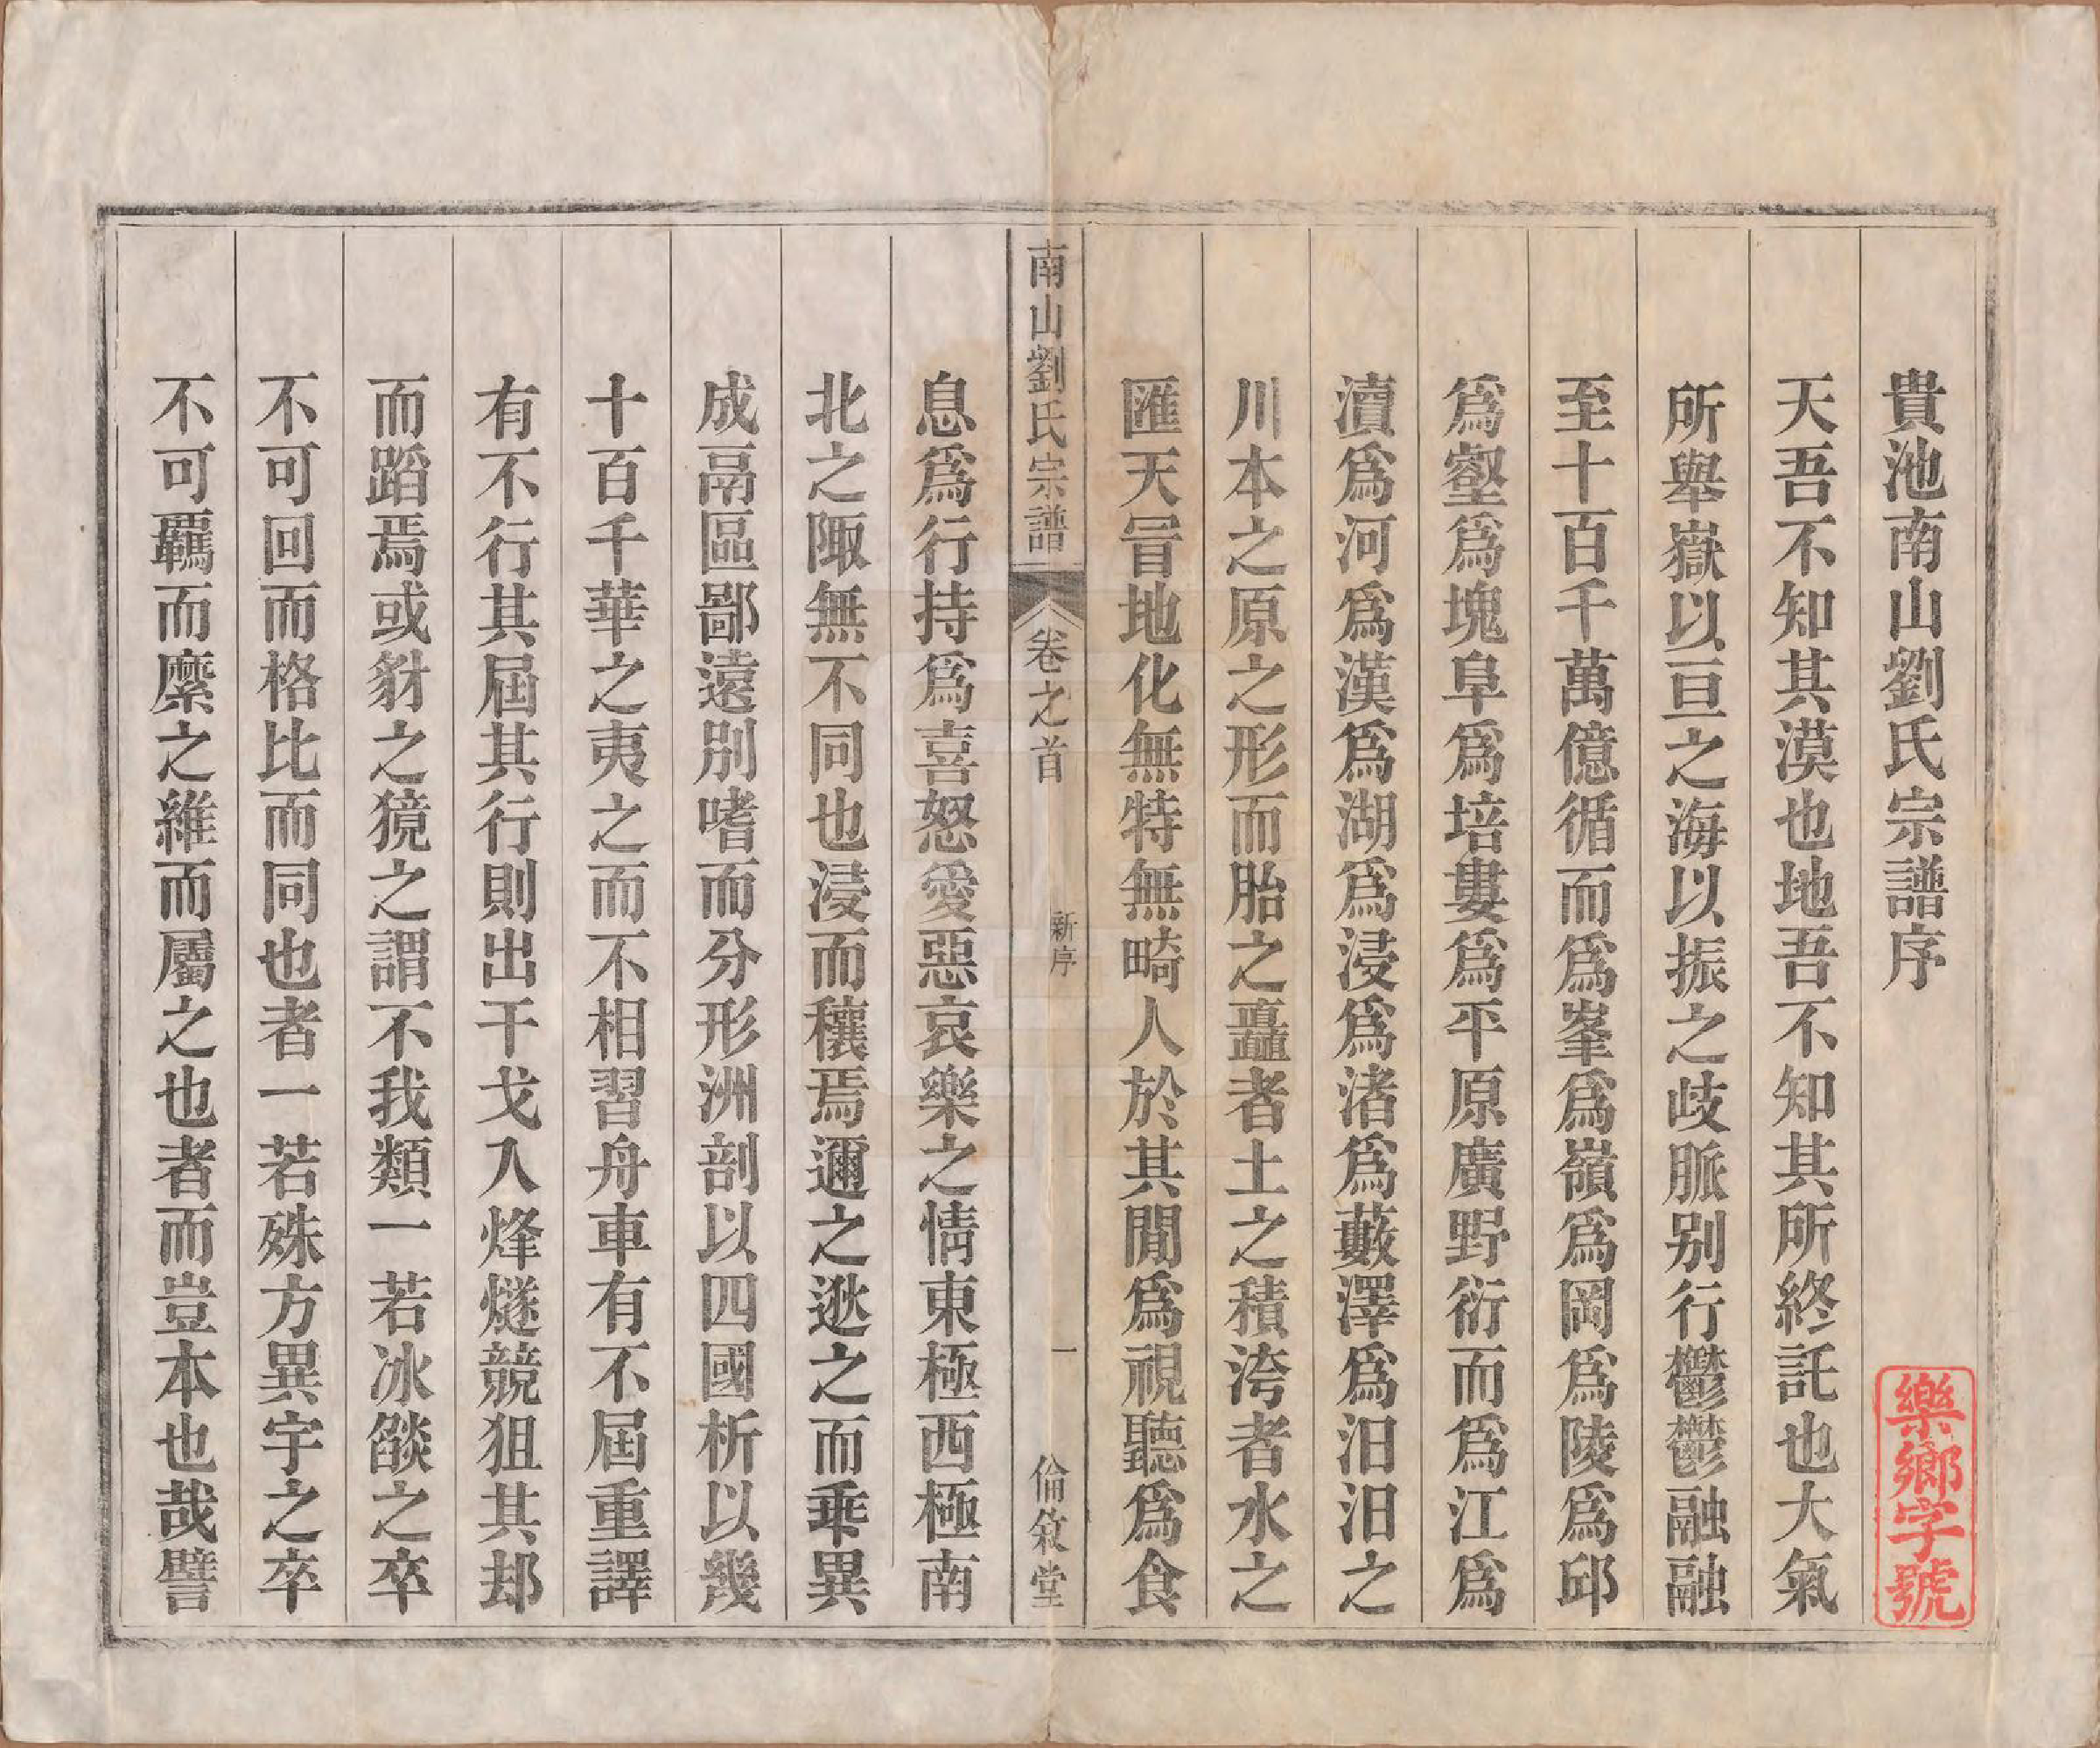 貴池南山劉氏宗譜序
樂鄉字號
天吾不知其漠也地吾不知其所終託也大氣
所舉嶽以亘之海以振之歧脈别行鬱鬱融融
至十百千萬億循而爲峯爲嶺爲岡爲陵爲邱
爲壑爲塊阜爲培塿爲平原廣野衍而爲江爲
瀆爲河爲漢爲湖爲浸爲渚爲藪澤爲汨汨之
川本之原之形而胎之矗者土之積洿者水之
匯天冒地化無特無畸人於其閒爲視聽爲食
南山劉氏宗譜
卷之首
新序
一
倫敘堂
息爲行持爲喜怒愛惡哀樂之情東極西極南
北之陬無不同也浸而穰焉邇之逖之而乖異
成鬲區鄙遠別嗜而分形洲剖以四國析以幾
十百千華之夷之而不相習舟車有不屆重譯
有不行其屆其行則出干戈入烽燧競狙其刦
而蹈焉或豺之獍之謂不我類一若冰燄之卒
不可回而格比而同也者一若殊方異宇之卒
不可羈而縻之維而屬之也者而豈本也哉譬